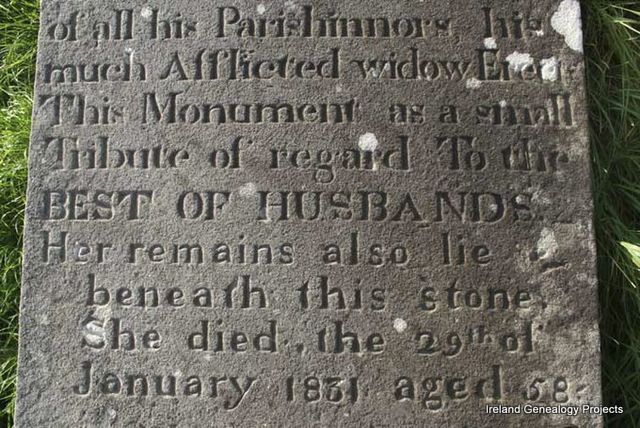 of all his Parishinnors, his
much Afflicted widow Erect
This Monument as a small
Tribute of regard To the
BEST OF HUSBANDS.
Her remains also lie
beneath this stone,
She died, the 29th of
January 1831 aged 68
Ireland Genealogy Projects